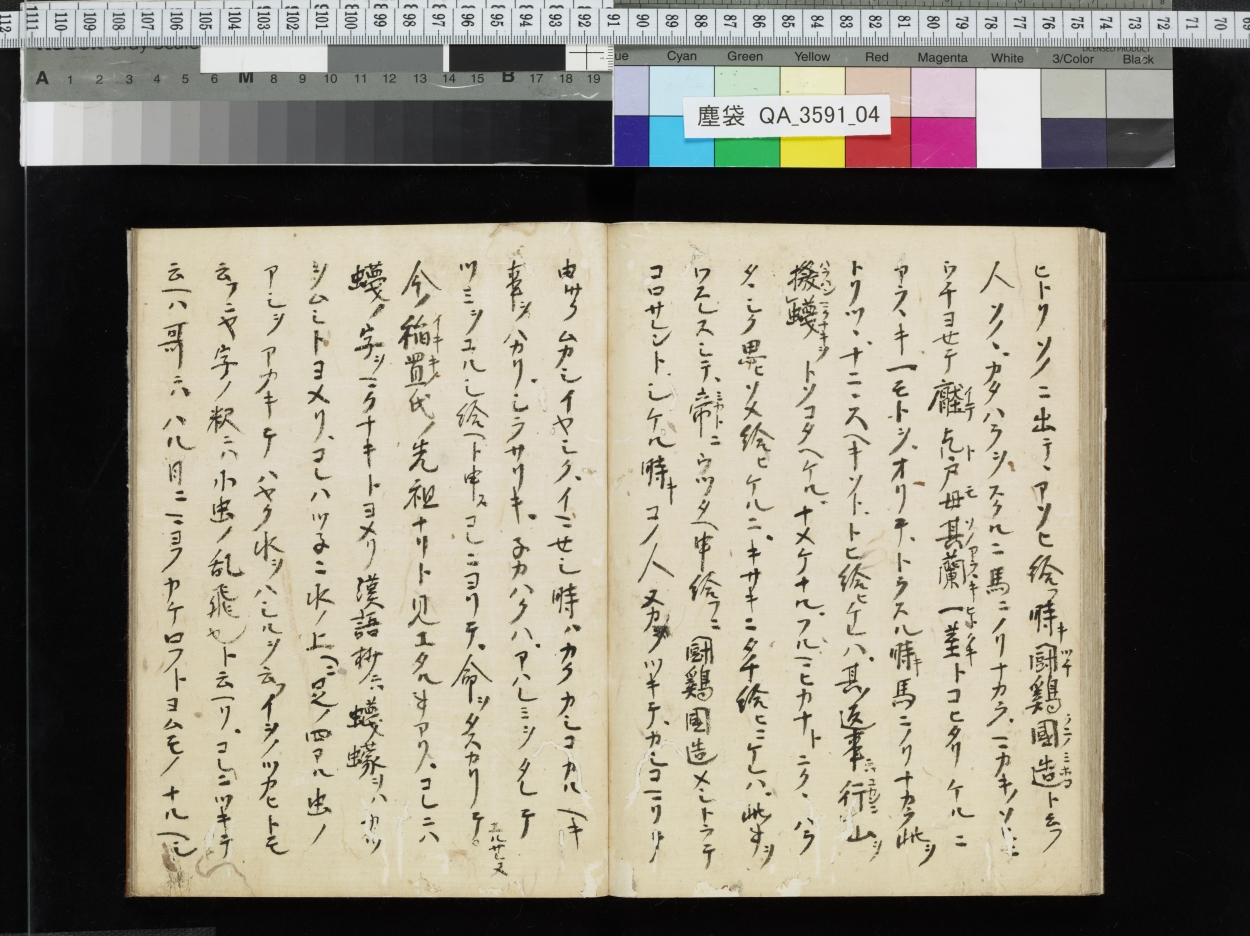 塵袋 QA_3591_04
ue Cyan Green Yellow Red Magenta White 3/Color Black
LICENSED PRODUCT
A 1 2 3 4 5 6 M 8 9 10 11 12 13 14 15 B 17 18 19
112 111 110 109 108 107 106 105 104 103 102 101 100 99 98 97 96 95 94 93 92 91 90 89 88 87 86 85 84 83 82 81 80 79 78 77 76 75 74 73 72 71 70 69
ヒトリソノニ出テ、アソヒ給フ時キ闘鶏国造ト云フ
人ソノ、カタハラヲスクルニ馬ニノリナカラ、
ウチヨセテ 戸母其蘭一茎トコヒタリケルニ
アラ、キ一モトヲ、オリテ、トラスル時キ馬ニノリナカラ此ヲ
トリツ、ナニニスヘキソト、トヒ給ヒケレハ、其返事ニ行山ヲ
撥蠛トソコタヘケル、ナメケナル、フル
タヽシク思ヒソメ給ヒケルニ、キサキニタチ給ヒニケレハ、此事ヲ
ワスレスシテ、帝ニウツタヘ申給フニ闘鶏国造メシトラテ
コロサレント、シケル時キコノ人又カヲツキテ、カシコマリヲ
申サクムカシイヤシク、イマセシ時ハカクカシコカルヘキ
事ヲハカリ、シラサリキ、
ツミヲユルシ給ヘト申スコレニヨリテ、命ヲタスカリテ
今ノ稲置代ノ先祖ナリト見エタル事アリ、コレニハ
蠛ノ字ヲニクナキトヨメリ漢語抄ニ蠛蠓ヲハカツ
ヲムシトヨメリ、コレハツネニ水ノ上ニ足ノ四アル虫ノ
アシヲアカキテハヤク水ヲハシルヲ云フイヲノツカヒトモ
云フニヤ字ノ釈ニハ小虫ノ乱飛也ト云ヘリ、コレニツキテ
云ヘハ哥ニハル月ニマヨフカケロフトヨムモノナルヘシ